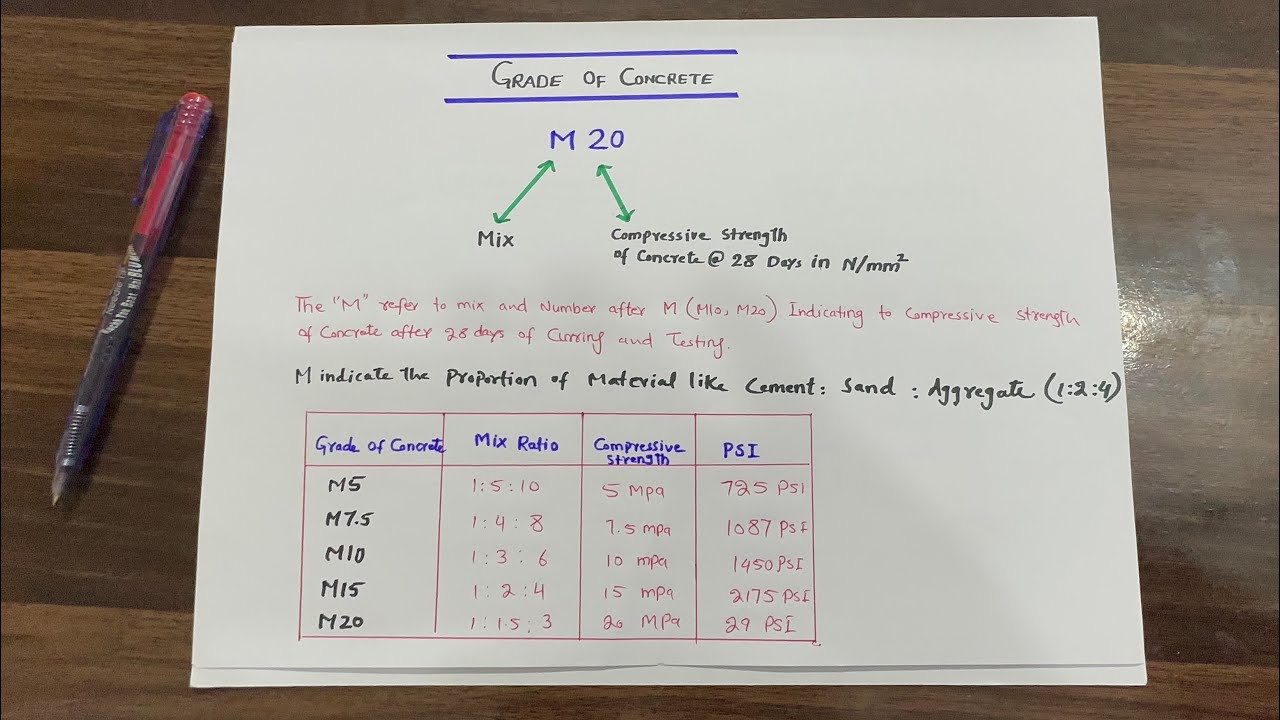 GRADE OF CONCRETE
M 20
Mix
Compressive Strength
of Concrete @ 28 Days in N/mm²
The "M" refer to mix and Number after M (M10, M20) Indicating to Compressive strength
of Concrete after 28 days of Curring and Testing.
M indicate the Proportion of Material like Cement : Sand : Aggregate (1:2:4)
Grade of Concrete Mix Ratio Compressive Strength PSI
M5 1:5:10 5 Mpa 725 PSI
M7.5 1:4:8 7.5 mpa 1087 PSI
M10 1:3:6 10 mpa 1450 PSI
M15 1:2:4 15 mpa 2175 PSI
M20 1:1.5:3 20 MPa 29 PSI